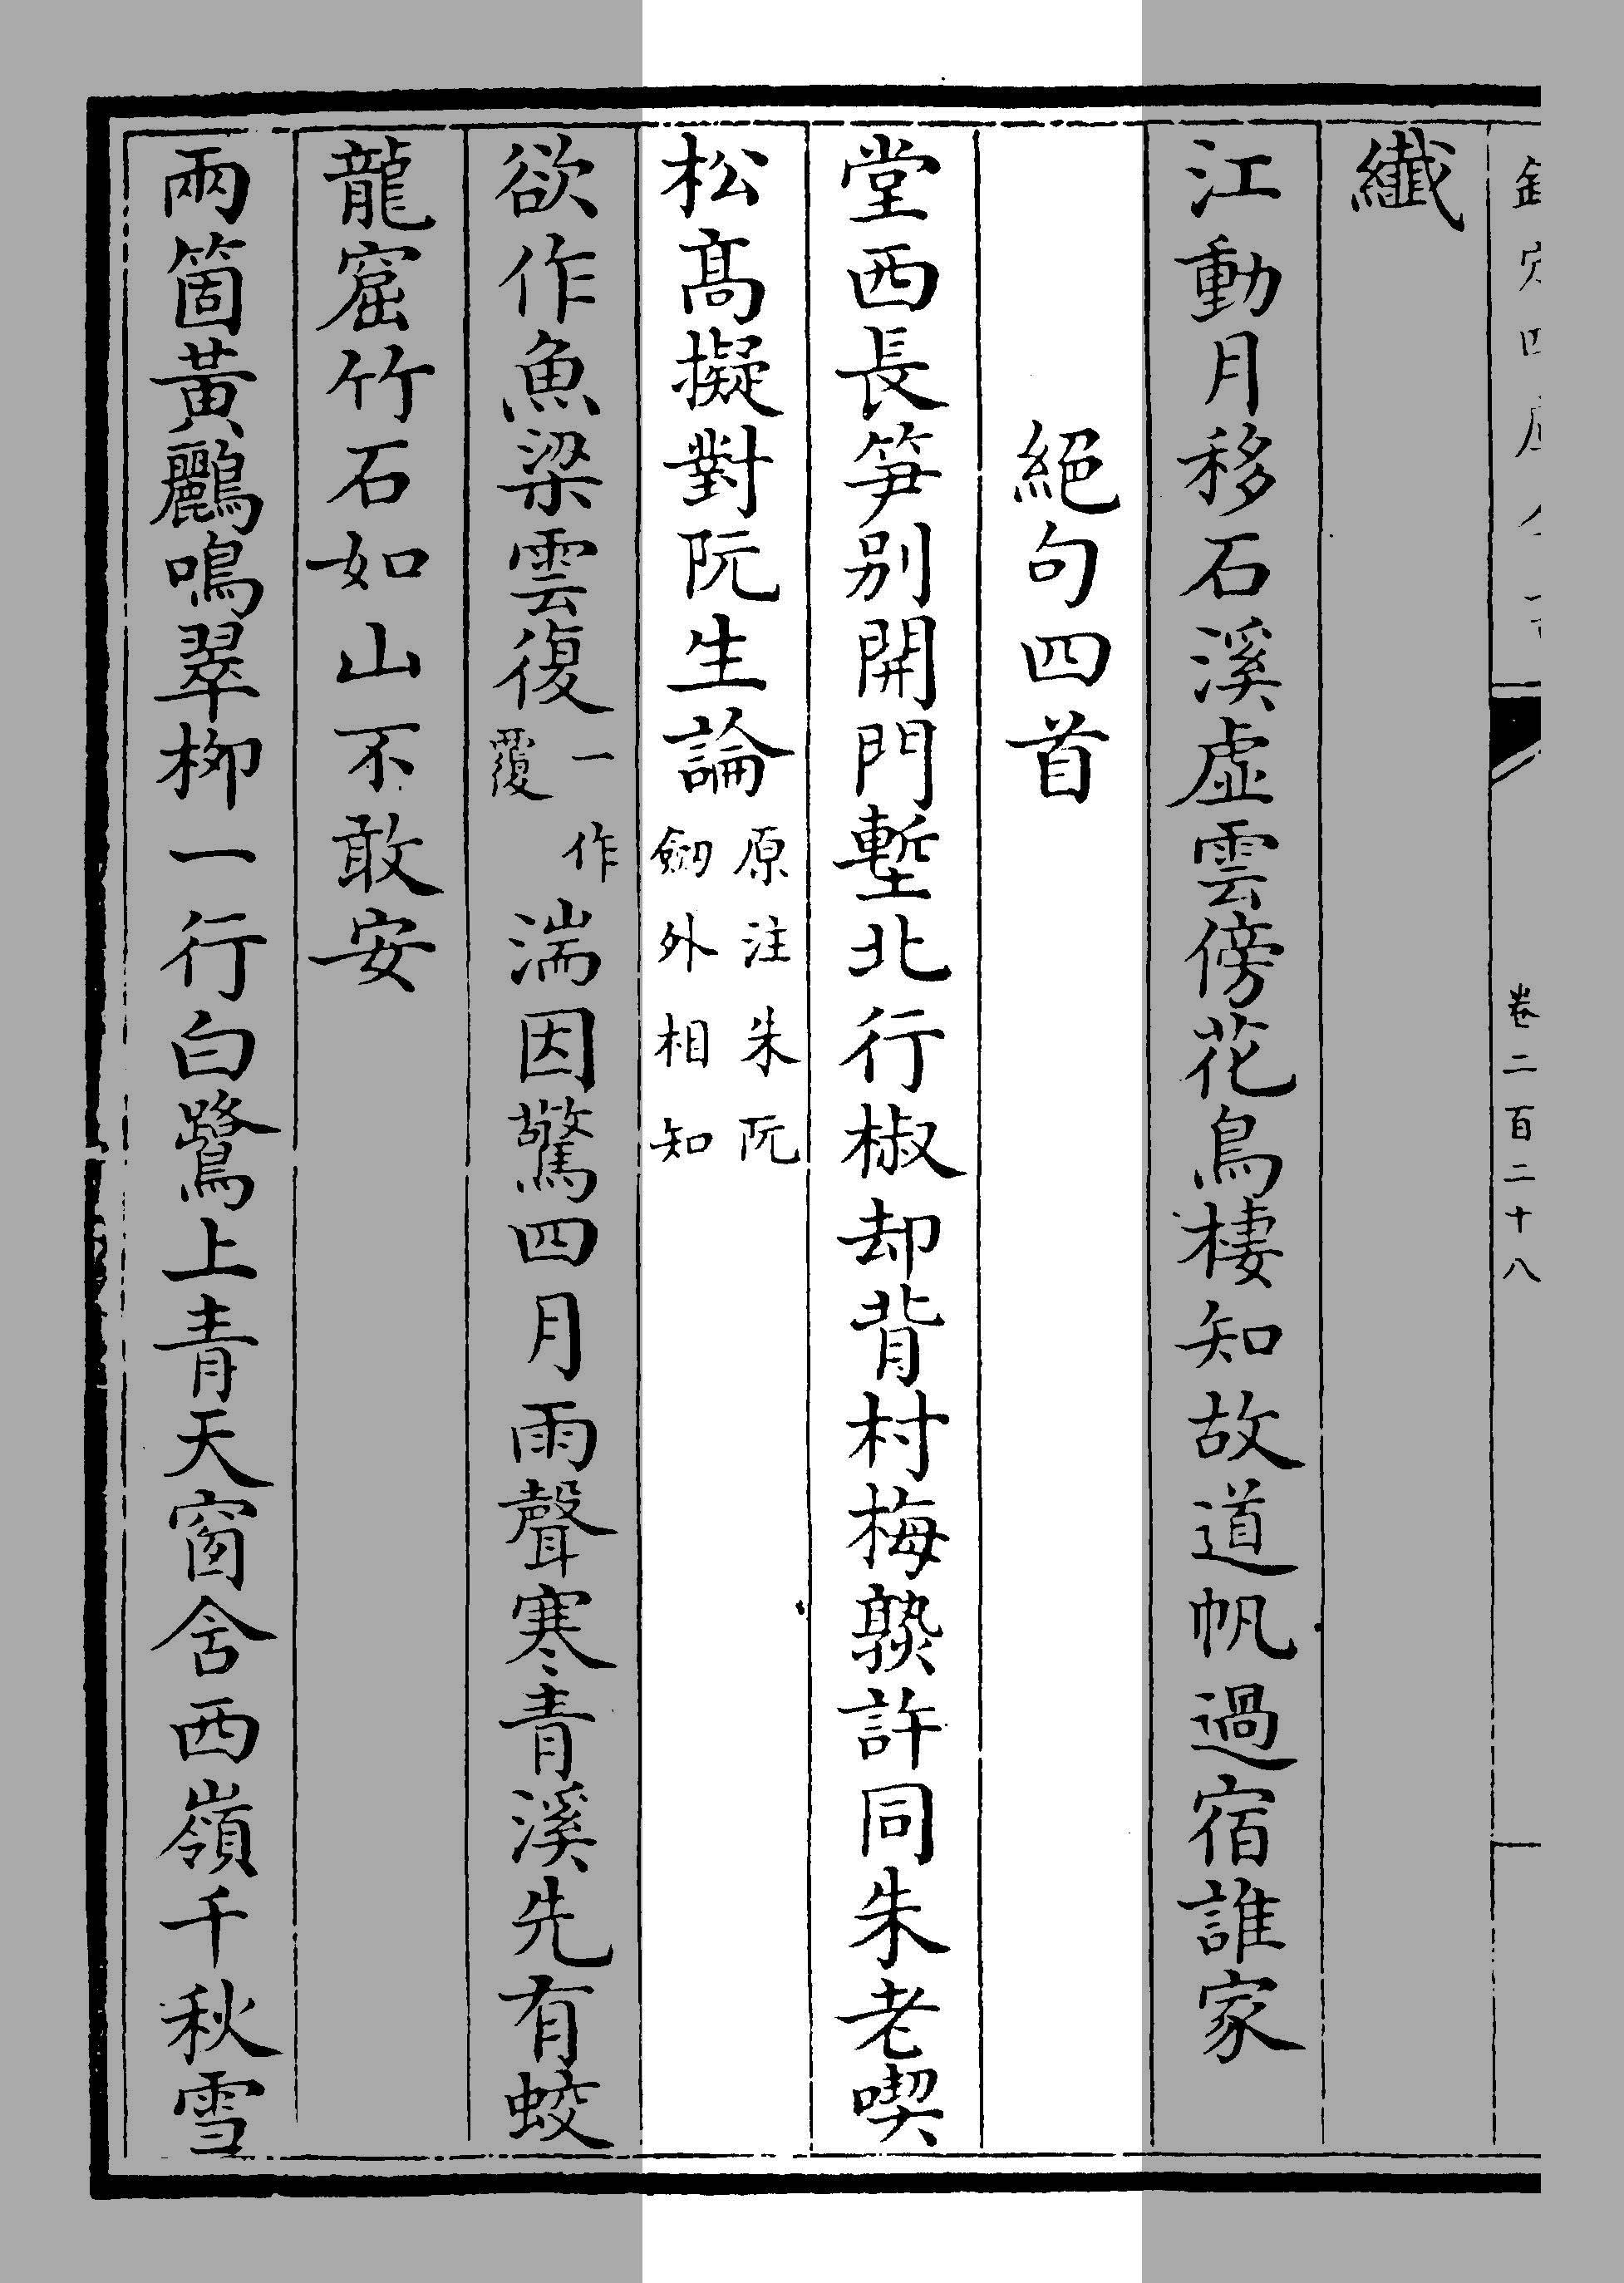 纖
江動月移石溪虛雲傍花鳥棲知故道帆過宿誰家
絕句四首
堂西長笋别開門塹北行椒却背村梅熟許同朱老喫
松髙擬對阮生論原注朱阮劒外相知
欲作魚梁雲復一作覆湍因驚四月雨聲寒青溪先有蛟
龍窟竹石如山不敢安
兩箇黃鸝鳴翠栁一行白鷺上青天窗含西嶺千秋雪
卷二百二十八